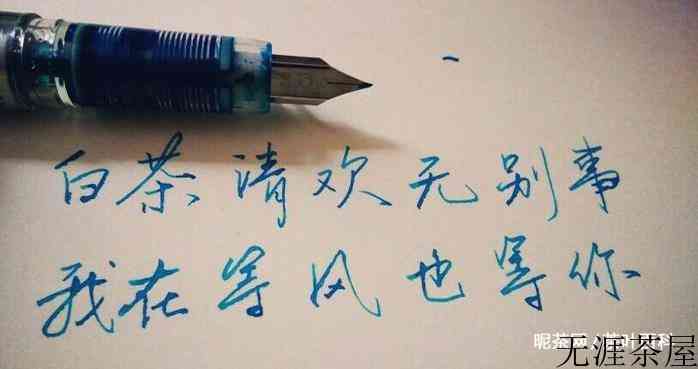 白茶清欢无别事
我在等风也等你
昵茶网/茶叶百科
无涯茶屋